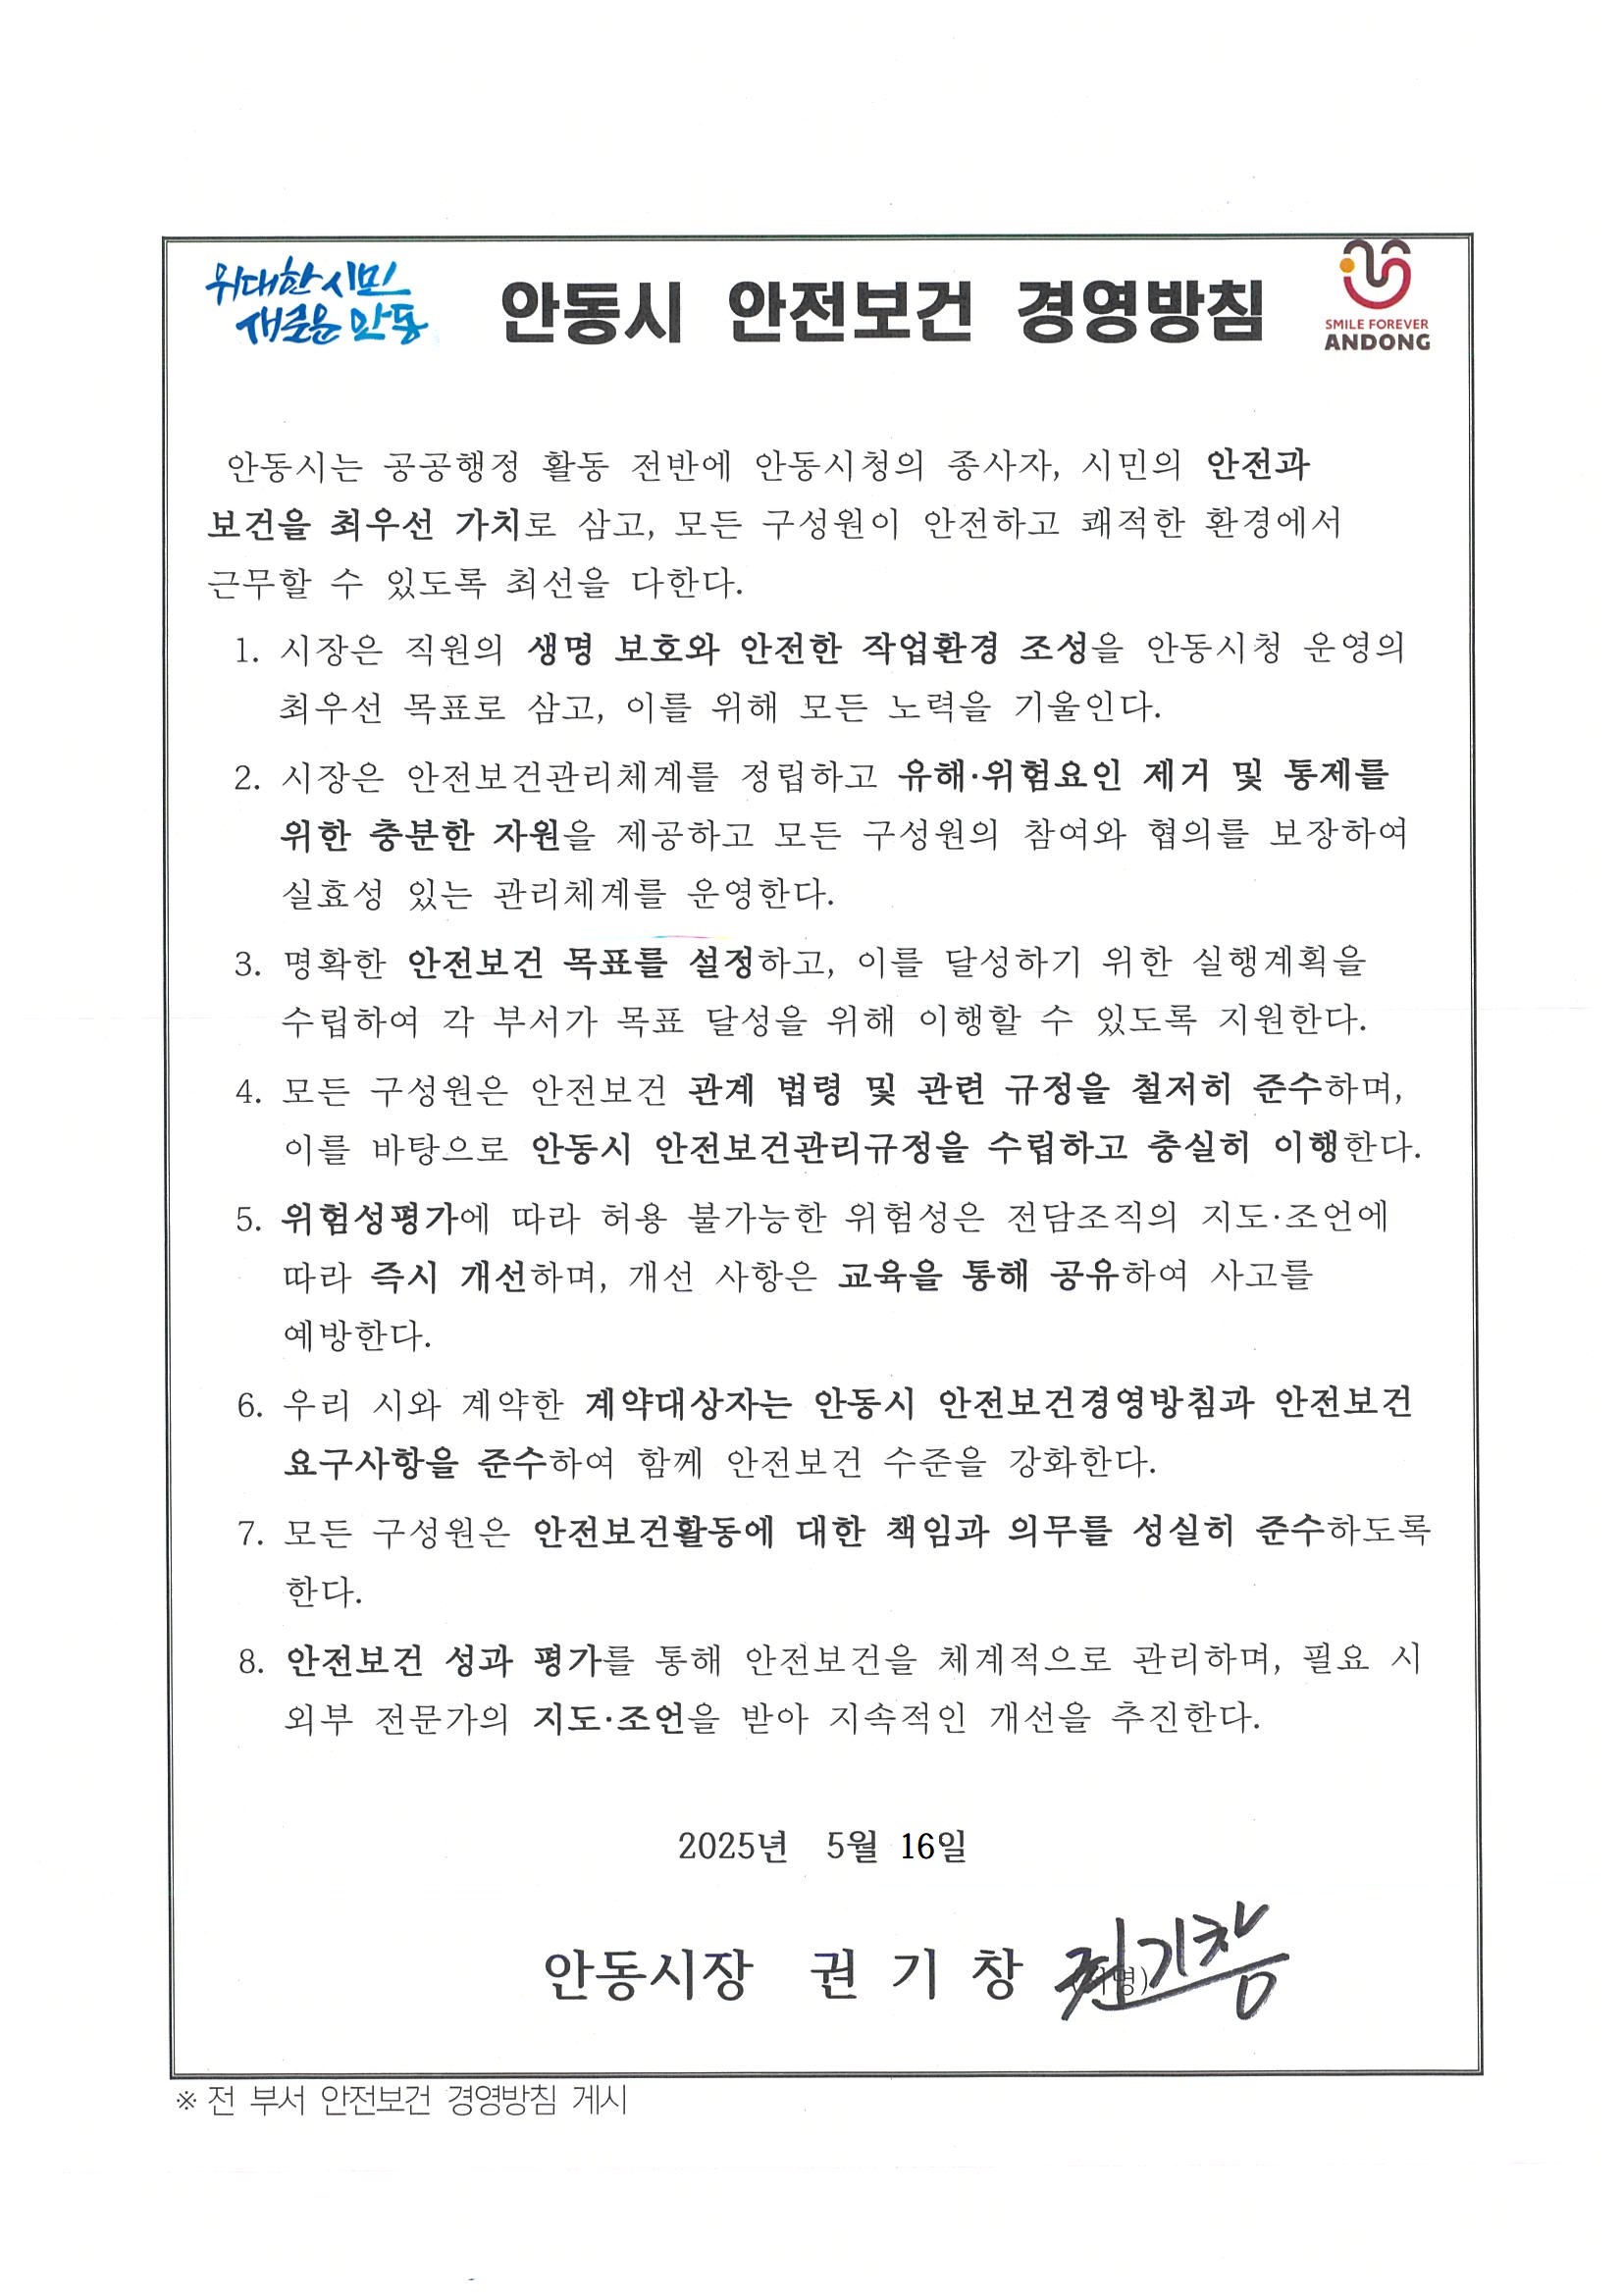 위대한 시민
새로운 안동
안동시 안전보건 경영방침
SMILE FOREVER
ANDONG
안동시는 공공행정 활동 전반에 안동시청의 종사자, 시민의 안전과
보건을 최우선 가치로 삼고, 모든 구성원이 안전하고 쾌적한 환경에서
근무할 수 있도록 최선을 다한다.
1. 시장은 직원의 생명 보호와 안전한 작업환경 조성을 안동시청 운영의
최우선 목표로 삼고, 이를 위해 모든 노력을 기울인다.
2. 시장은 안전보건관리체계를 정립하고 유해·위험요인 제거 및 통제를
위한 충분한 자원을 제공하고 모든 구성원의 참여와 협의를 보장하여
실효성 있는 관리체계를 운영한다.
3. 명확한 안전보건 목표를 설정하고, 이를 달성하기 위한 실행계획을
수립하여 각 부서가 목표 달성을 위해 이행할 수 있도록 지원한다.
4. 모든 구성원은 안전보건 관계 법령 및 관련 규정을 철저히 준수하며,
이를 바탕으로 안동시 안전보건관리규정을 수립하고 충실히 이행한다.
5. 위험성평가에 따라 허용 불가능한 위험성은 전담조직의 지도·조언에
따라 즉시 개선하며, 개선 사항은 교육을 통해 공유하여 사고를
예방한다.
6. 우리 시와 계약한 계약대상자는 안동시 안전보건경영방침과 안전보건
요구사항을 준수하여 함께 안전보건 수준을 강화한다.
7. 모든 구성원은 안전보건활동에 대한 책임과 의무를 성실히 준수하도록
한다.
8. 안전보건 성과 평가를 통해 안전보건을 체계적으로 관리하며, 필요 시
외부 전문가의 지도·조언을 받아 지속적인 개선을 추진한다.
2025년 5월 16일
안동시장 권 기 창 권기창
※ 전 부서 안전보건 경영방침 게시